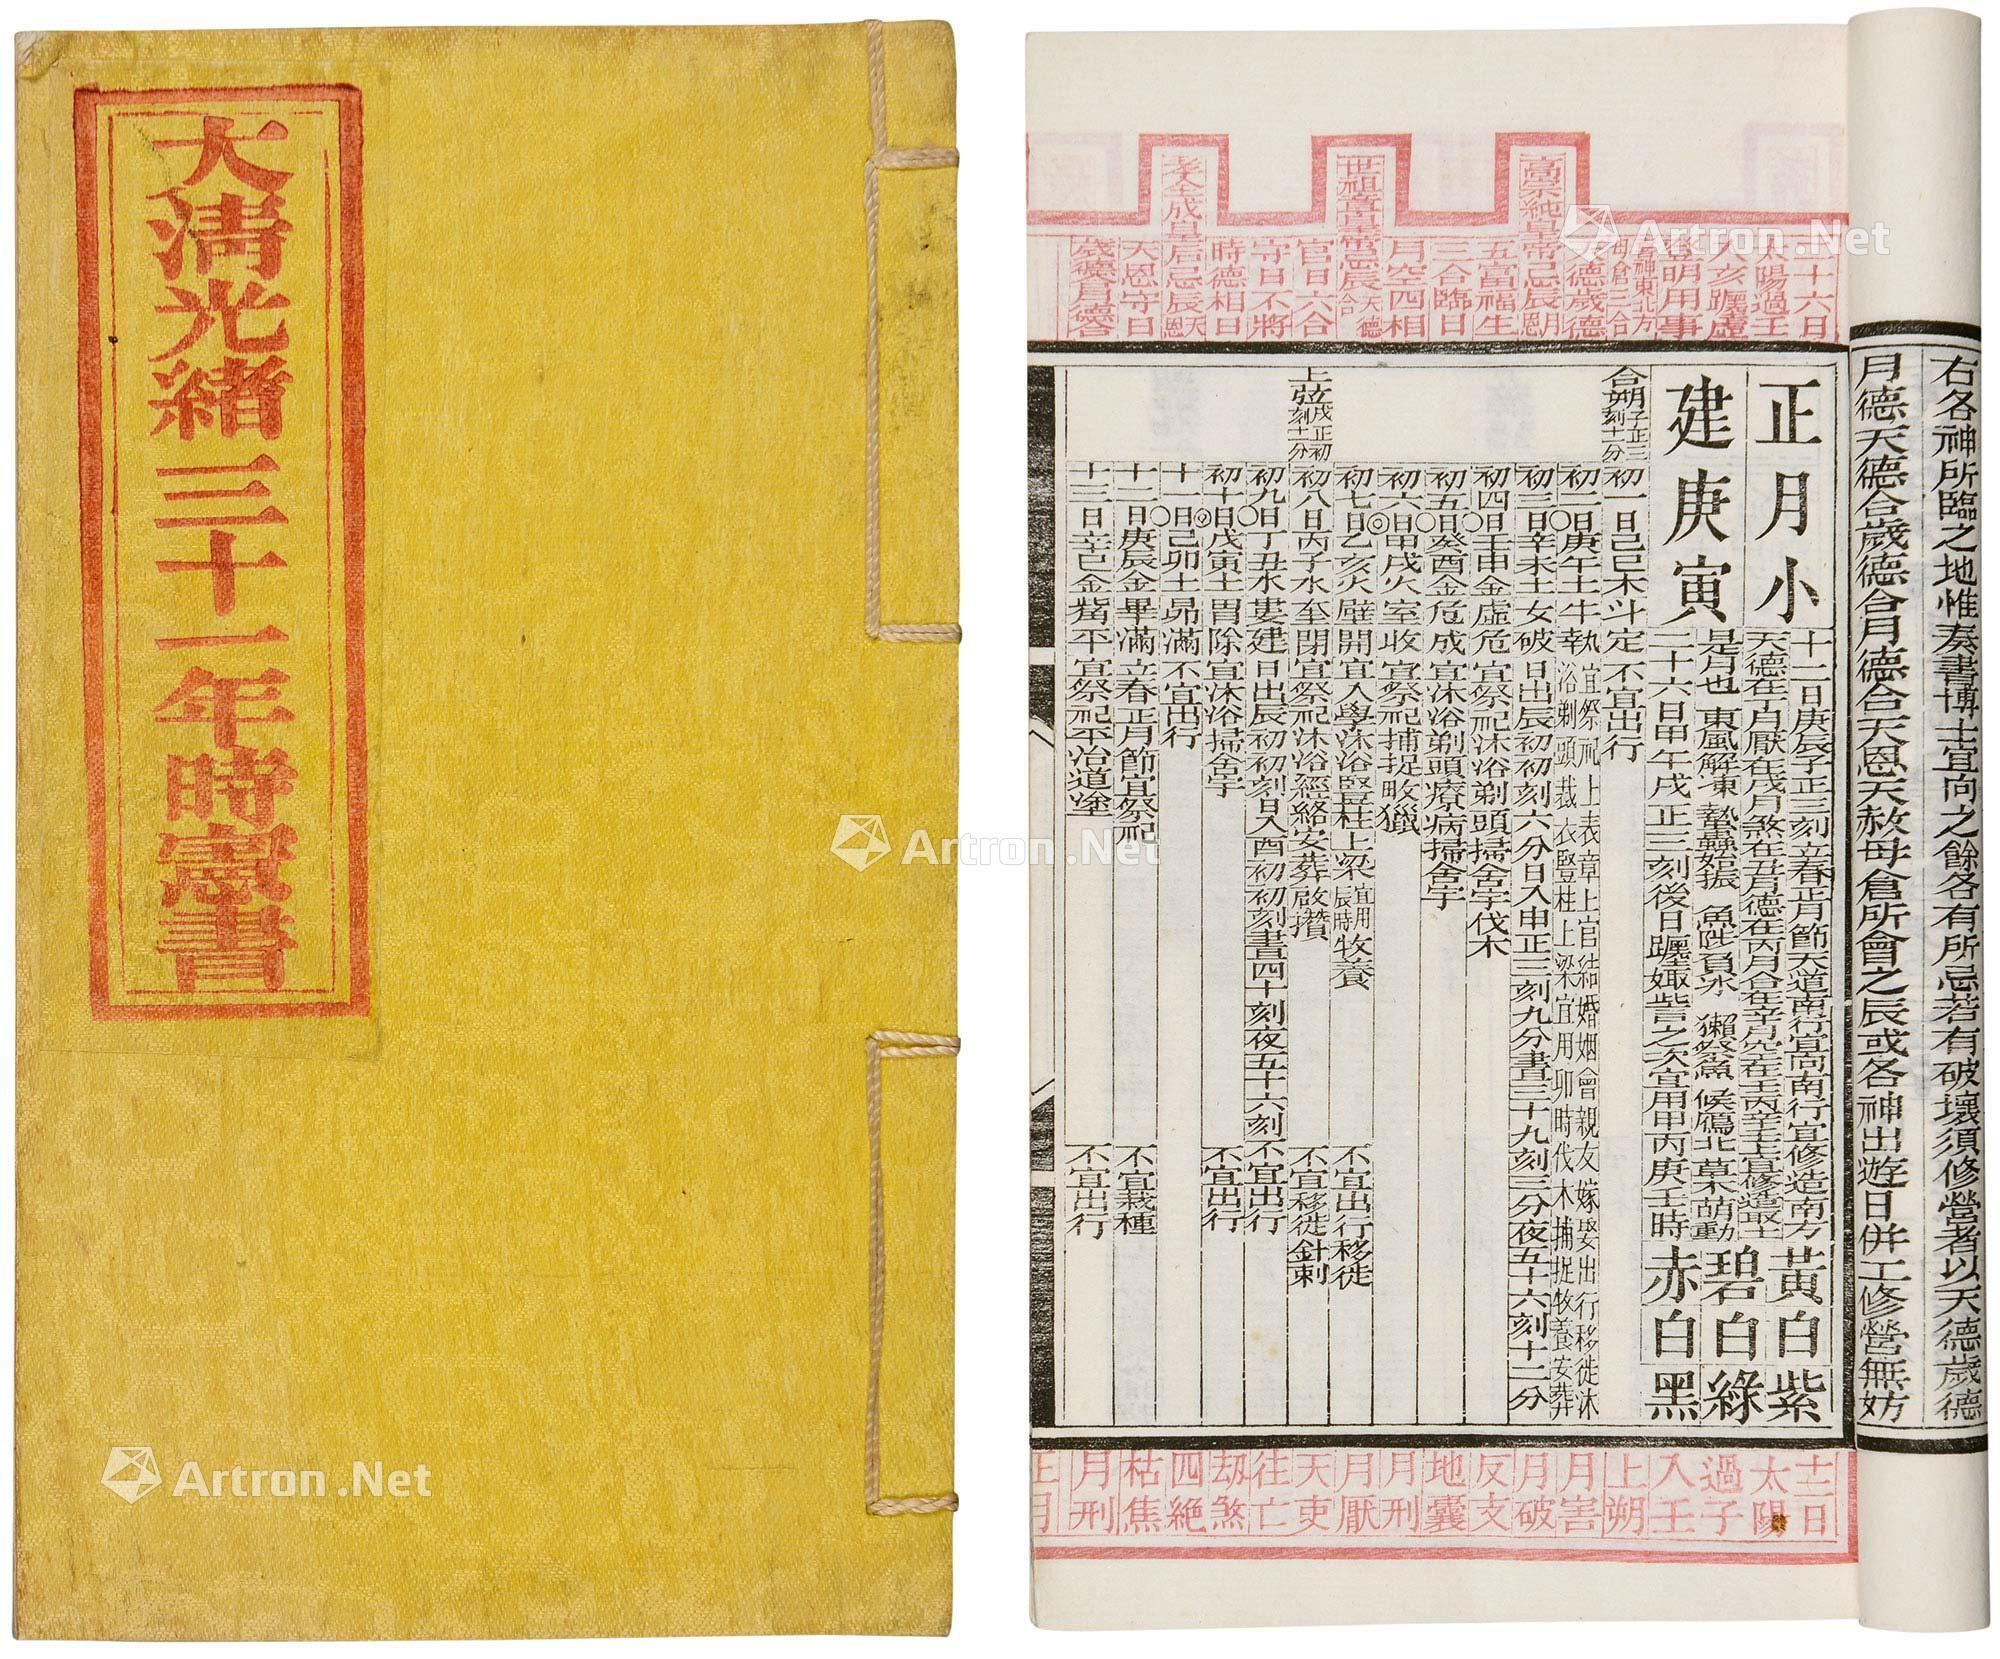 大清光緒三十一年時憲書
右各神所臨之地惟奏書博士宜向之餘各有所忌若有破壞須修營者以天德歲德
月德天德合歲德合月德合天恩天赦母倉所會之辰或各神出遊日併工修營無妨
二十六日
太陽過壬
入亥躔
登明用事
母倉三合
天德歲德
高宗純皇帝忌辰月恩
五富福生
三合臨日
月空四相
世祖章皇帝忌辰天德合
官日六合
守日不將
時德相日
孝全成皇后忌辰天恩
天恩守日
歲德合月德合
正月小
建庚寅
十二日庚辰子正三刻立春正月節天道南行宜向南行宜修造南方
天德在丁月厭在戌月煞在丑月德在丙月合在辛月空在壬丙辛壬上宜修造取土
是月也 東風解凍 蟄蟲始振 魚陟負冰 獺祭魚 候鴈北 草木萌動
二十六日甲午戌正三刻後日躔娵訾之次宜用甲丙庚壬時
黃白紫
碧白綠
赤白黑
合朔子正三刻十一分
初一日己巳木斗定 不宜出行
初二日庚午土牛執 宜祭祀上表章上官結婚姻會親友嫁娶出行移徙沐浴剃頭裁衣豎柱上梁宜用卯時伐木捕捉牧養安葬
初三日辛未土女破日出辰初初刻六分日入申正三刻九分晝三十九刻三分夜五十六刻十二分
初四日壬申金虛危 宜祭祀沐浴剃頭掃舍宇伐木
初五日癸酉金危成 宜沐浴剃頭療病掃舍宇
初六日甲戌火室收 宜祭祀捕捉畋獵
初七日乙亥火壁開 宜入學沐浴豎柱上梁宜用辰時牧養 不宜出行移徙
上弦戌正初刻十一分
初八日丙子水奎閉 宜祭祀沐浴經絡安葬啟攢 不宜移徙針刺
初九日丁丑水婁建日出辰初初刻日入酉初初刻晝四十刻夜五十六刻不宜出行
初十日戊寅土胃除 宜沐浴掃舍宇 不宜出行
十一日己卯土昴滿 不宜出行
十二日庚辰金畢滿 立春正月節宜祭祀 不宜栽種
十三日辛巳金觜平 宜祭祀平治道塗 不宜出行
十二日
太陽
過子
入壬
上朔
月害
月破
反支
地囊
月刑
月厭
天吏
往亡
劫煞
四絕
枯焦
月刑
正月
Artron.Net
Artron.Net
Artron.Net